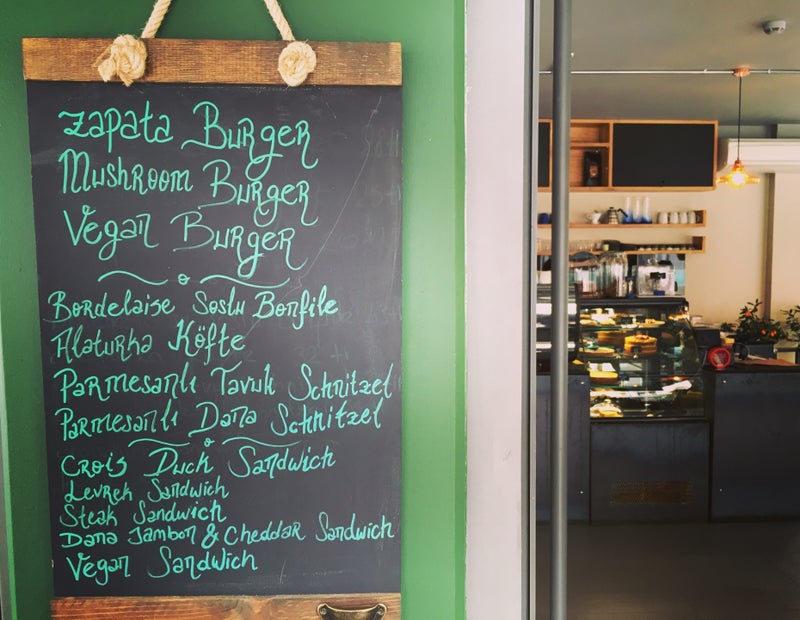 Zapata Burger
Mushroom Burger
Vegan Burger
Bordelaise Soslu Bonfile
Alaturka Köfte
Parmesanlı Tavuk Schnitzel
Parmesanlı Dana Schnitzel
Crois Duck Sandwich
Levrek Sandwich
Steak Sandwich
Dana Jambon & Cheddar Sandwich
Vegan Sandwich